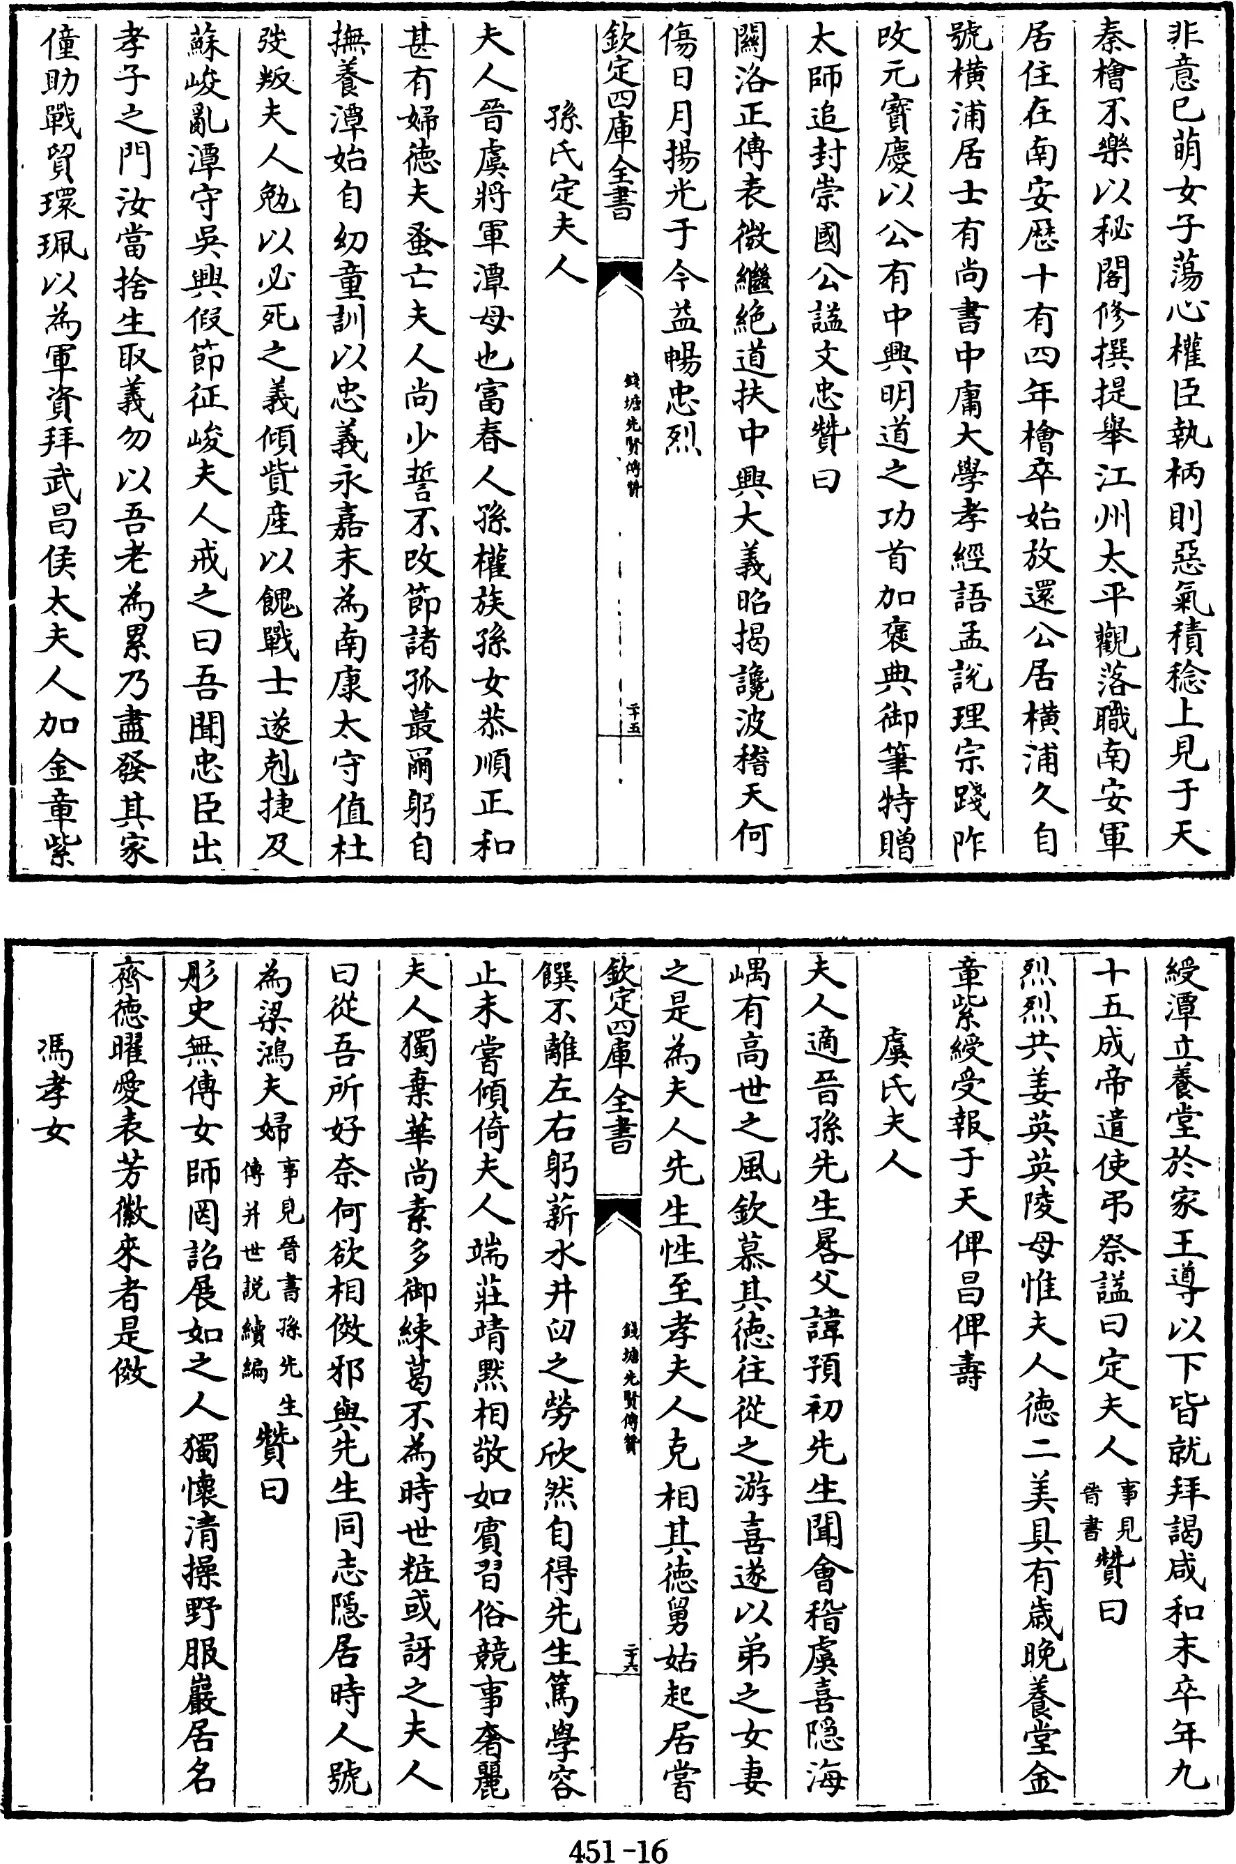 非意已萌女子蕩心權臣執柄則惡氣積稔上見于天
秦檜不樂以秘閣修撰提舉江州太平觀落職南安軍
居住在南安歷十有四年檜卒始放還公居橫浦久自
號橫浦居士有尚書中庸大學孝經語孟説理宗踐阼
改元寶慶以公有中興明道之功首加褒典御筆特贈
太師追封崇國公謚文忠贊曰
關洛正傳表微繼絶道扶中興大義昭揭讒波稽天何
傷日月揚光于今益暢忠烈
欽定四庫全書
錢塘先賢傳贊
二十五
孫氏定夫人
夫人晉虞將軍潭母也富春人孫權族孫女恭順正和
甚有婦德夫蚤亡夫人尚少誓不改節諸孤蕞爾躬自
撫養潭始自幼童訓以忠義永嘉末為南康太守值杜
弢叛夫人勉以必死之義傾貲產以餽戰士遂剋捷及
蘇峻亂潭守吳興假節征峻夫人戒之曰吾聞忠臣出
孝子之門汝當捨生取義勿以吾老為累乃盡發其家
僮助戰貿環珮以為軍資拜武昌侯太夫人加金章紫
綬潭立養堂於家王導以下皆就拜謁咸和末卒年九
十五成帝遣使弔祭謚曰定夫人事見晉書贊曰
烈烈共姜英英陵母惟夫人德二美具有歲晚養堂金
章紫綬受報于天俾昌俾壽
虞氏夫人
夫人適晉孫先生晷父諱預初先生聞會稽虞喜隱海
嵎有高世之風欽慕其德往從之游喜遂以弟之女妻
之是為夫人先生性至孝夫人克相其德舅姑起居嘗
欽定四庫全書
錢塘先賢傳贊
二十六
饌不離左右躬薪水井臼之勞欣然自得先生篤學容
止未嘗傾倚夫人端莊靖默相敬如賓習俗競事奢麗
夫人獨棄華尚素多御練葛不為時世粧或訝之夫人
曰從吾所好奈何欲相傚邪與先生同志隱居時人號
為梁鴻夫婦事見晉書孫先生傳并世説續編贊曰
彤史無傳女師罔詔展如之人獨懷清操野服巖居名
齊德曜愛表芳徽來者是傚
馮孝女
451-16